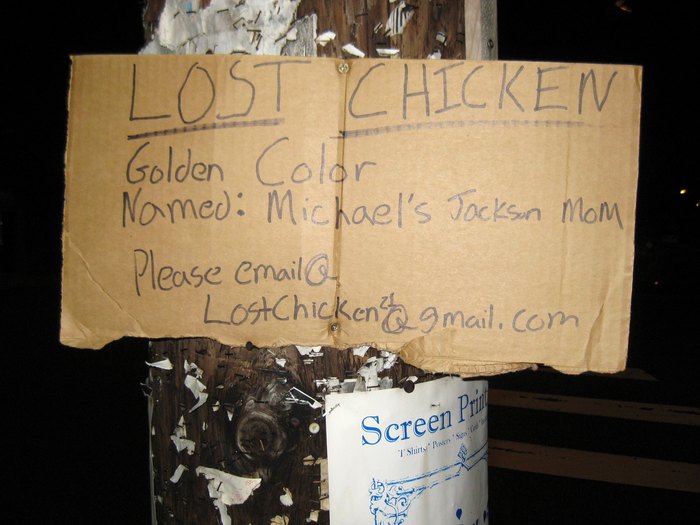 LOST CHICKEN
Golden Color
Named: Michael's Jackson MOM
Please email@
LostChicken21@gmail.com
Screen Prin
T Shirts * Posters *